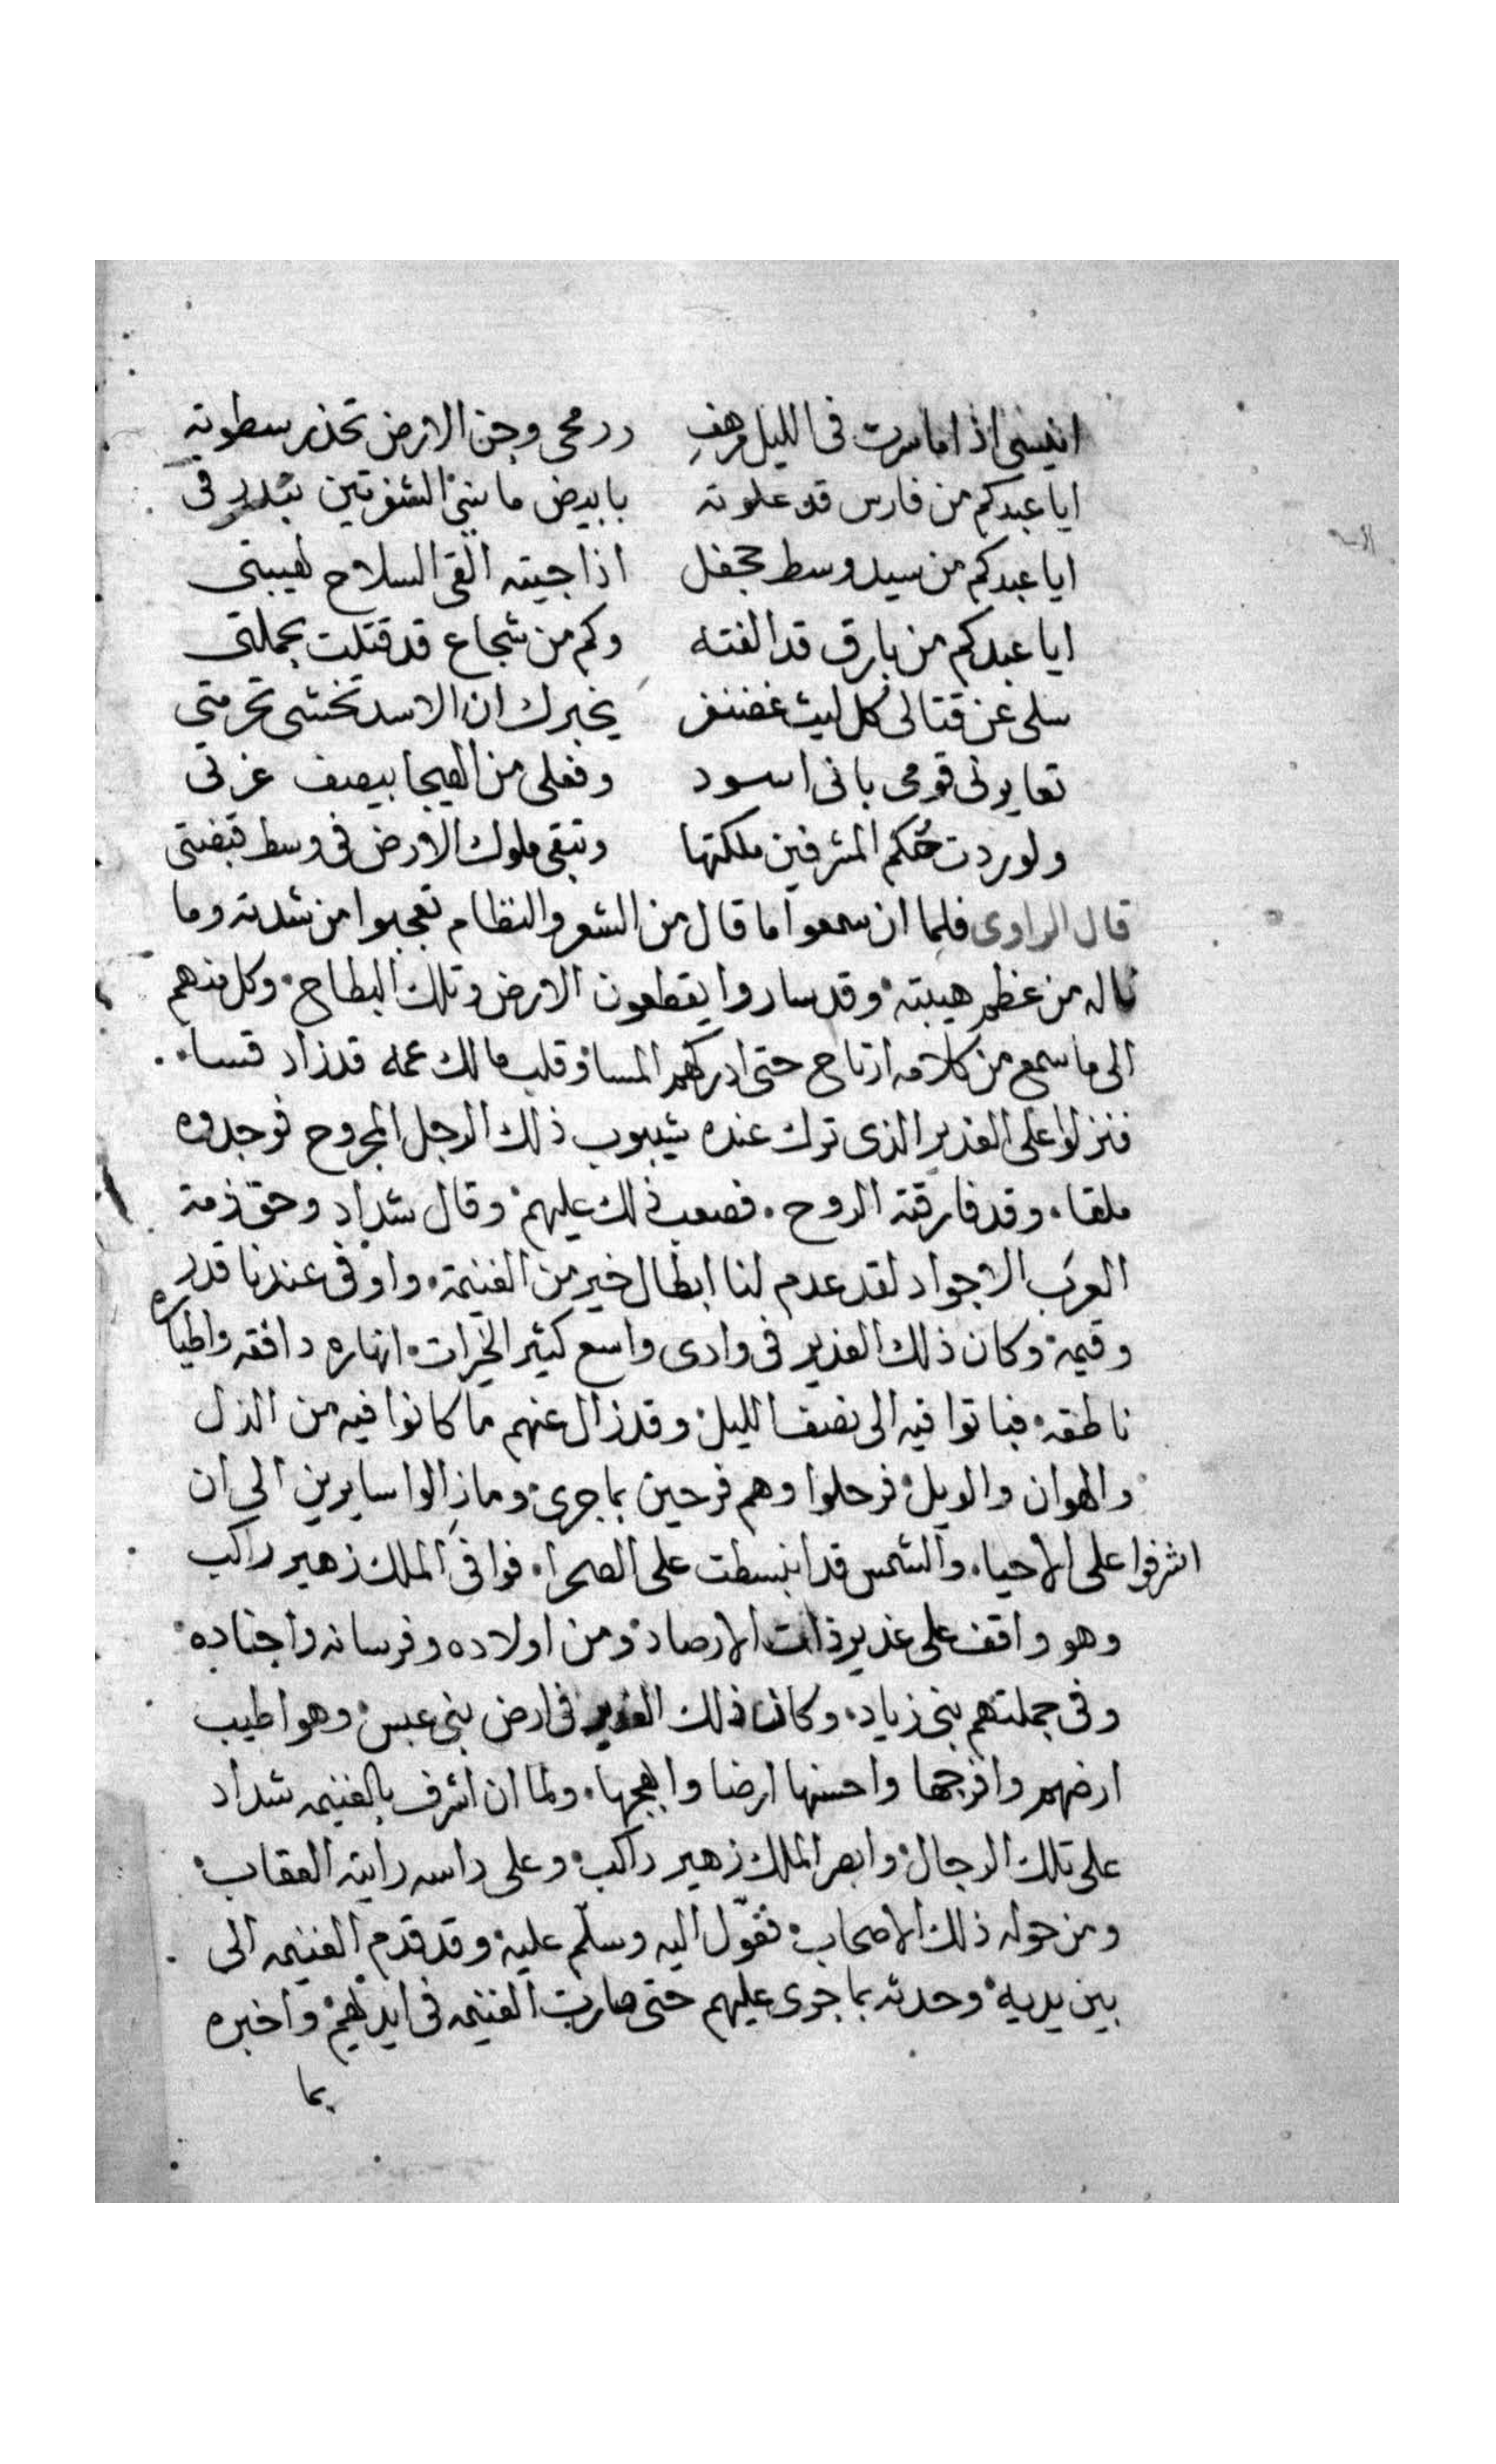 انيسي اذا ما سرت في الليل مرهف ورمحي وجن الارض تحذر سطوتي
ايا عبد كم من فارس قد علوته بابيض ما بين الشفرتين
ايا عبد كم من سيد وسط جحفل اذا جيته القى السلاح لهيبتي
ايا عبد كم من بارق قد الفته وكم من شجاع قد قتلت بحملتي
سلي عن قتالي كل ليث غضنفر يخبرك ان الاسد تخشى حرمتي
تعايرني قومي باني اسود وفعلي من الهيجا بيصف عزتي
ولو ردت حُكم المشرفين ملكتها وتبقى ملوك الارض في وسط قبضتي
قال الراوي فلما ان سمعوا ما قال من الشعر والنظام تعجبوا من شدته وما
ناله من عظم هيبته وقد ساروا يقطعون الارض وتلك البطاح وكل منهم
الى ما سمع من كلامه ارتاح حتى ادركهم المسا وقلب مالك عمه قد زاد قسا
فنزلوا على الغدير الذي ترك عنده شيبوب ذلك الرجل المجروح فوجدوه
ملقا وقد فارقته الروح فصعب ذلك عليهم وقال شداد وحق ذمة
العرب الاجواد لقد عدم لنا ابطال خير من الغنيمة واوفى عندنا قدر
وقيمه وكان ذلك الغدير في وادي واسع كثير الخيرات انهاره دافقه واطياره
ناطقه فباتوا فيه الى نصف الليل وقد زال عنهم ما كانوا فيه من الذل
والهوان والويل فرحلوا وهم فرحين بما جرى وما زالوا سايرين الى ان
اشرفوا على الاحياء والشمس قد انبسطت على الصحرا فوافى الملك زهير راكب
وهو واقف على غدير ذات الارصاد ومن اولاده وفرسانه واجناده
وفي جملتهم بني زياد وكان ذلك الغدير في ارض بني عبس وهو اطيب
ارضهم وافرجها واحسنها ارضا وابهجها ولما ان اشرف بالغنيمه شداد
على تلك الرجال وابصر الملك زهير راكب وعلى راسه راية العقاب
ومن حوله ذلك الاصحاب فتحوّل اليه وسلّم عليه وقد قدم الغنيمه الى
بين يديه وحدثه بما جرى عليهم حتى صارت الغنيمه في ايديهم واخبره
بما